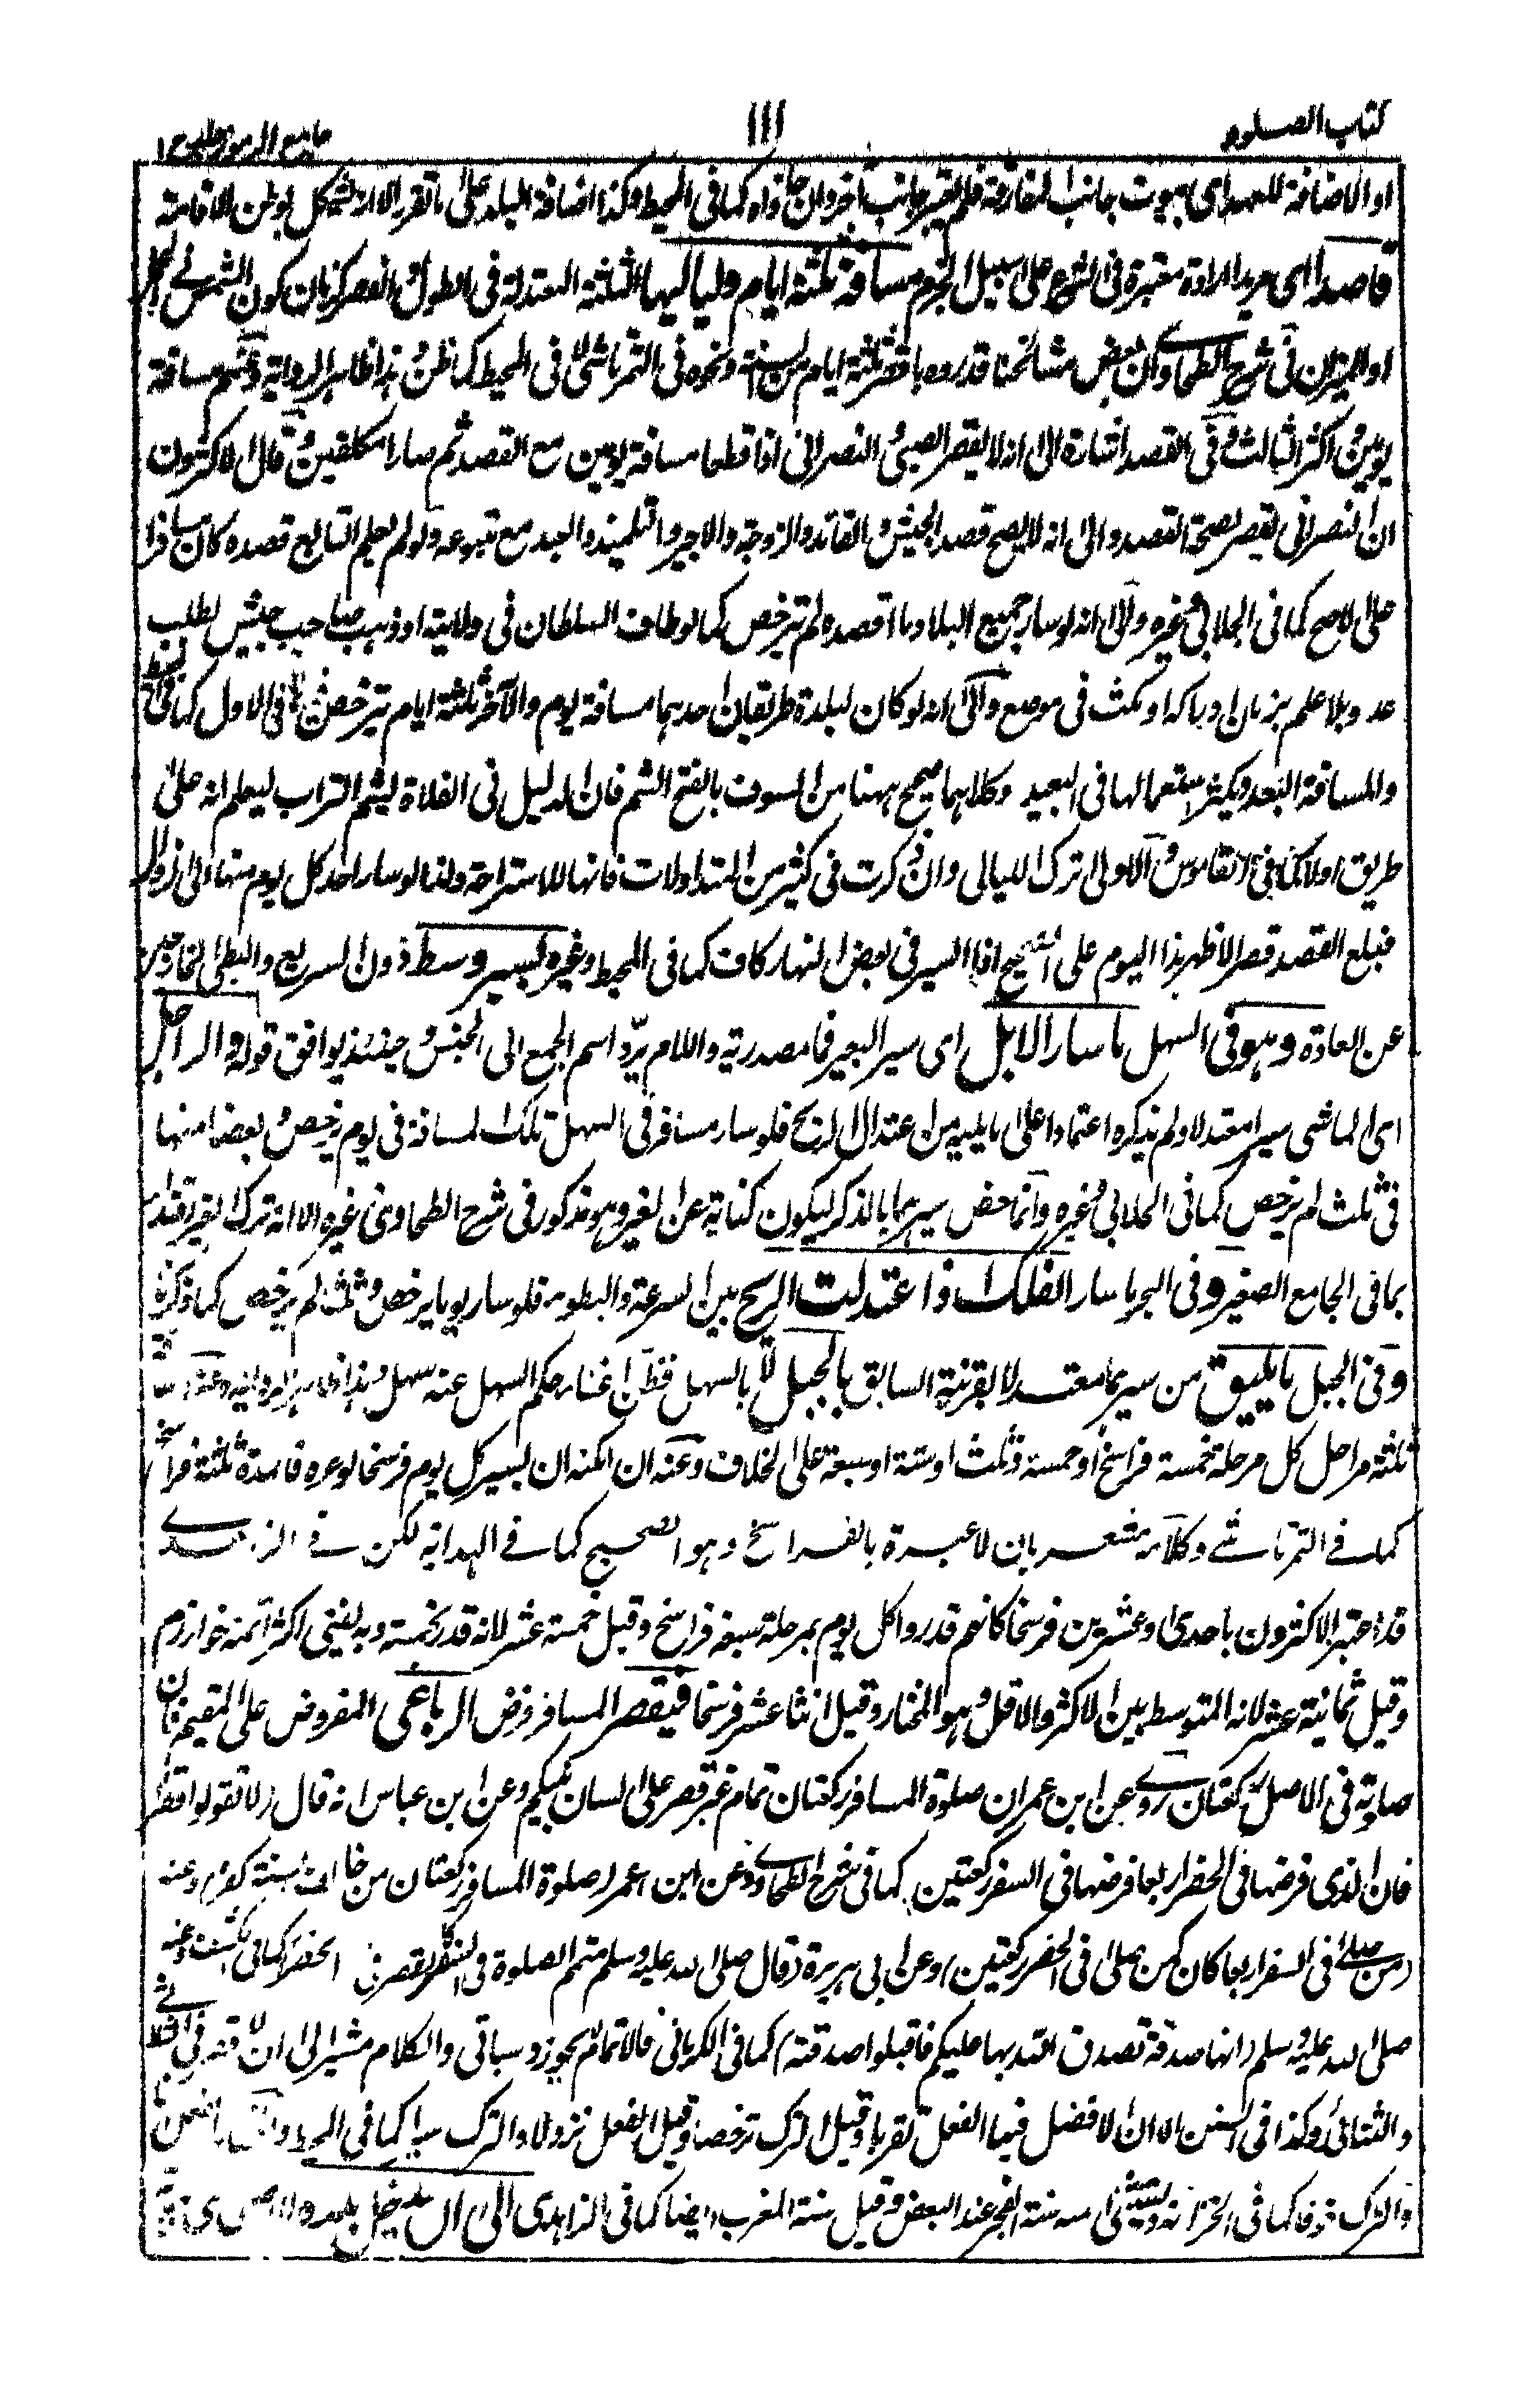 كتاب الصلوة
١١١
جامع الرموز جلد ١
او الاضافة للعهد اى بيوت جانب المفارقة فلم يعتبر جانب آخر وان جازاه كما فى المحيط وكذا اضافة البلد على ما تقرر الا انه يشكل بوطن الاقامة
قاصدا اى مريدا ارادة معتبرة فى الشرع على سبيل الجزم مسافة ثلثة ايام ولياليها الثلثة المعتدلة فى الطول والقصر كزمان كون الشمس فى الحمل
او الميزان فى شرح الطحاوى ان بعض مشائخنا قدروه باقصر ثلثة ايام من السنة ونحوه فى التمرتاشى لا فى المحيط كما ظن هذا ظاهر الرواية وعنهم مسافة
يومين واكثر الثالث وفى القصد اشارة الى انه لا يقصر الصبى والنصرانى اذا قطعا مسافة يومين مع القصد ثم صارا مكلفين وقال الاكثرون
ان النصرانى يقصر لصحة القصد والى انه لا يصح قصد الجيش والقائد والزوجة والاجير والتلميذ والعبد مع متبوعه ولو لم يعلم التابع قصده كان مسافرا
على الاصح كما فى الجلابى وغيره والى انه لو سار جميع البلاد بلا قصده لم يترخص كما لو طاف السلطان فى ولايته او ذهب صاحب جيش لطلب
عدو بلا علم بزمان ادراكه او مكث فى موضع والى انه لو كان لبلدة طريقان احدهما مسافة يوم والآخر ثلثة ايام يترخص فى الثانى لا فى الاول كما فى
والمسافة البعد ويكثر استعمالها فى البعيد وكلاهما صحيح ههنا من السوف بالفتح الشم فان الدليل فى الفلاة يشم التراب ليعلم انه على
طريق اولا كما فى القاموس والاولى ترك الليالى وان ذكرت فى كثير من المتداولات فانها للاستراحة ولذا لو سار احد كل يوم منها الى الزوال
فبلغ المقصد قصر الاظهر بهذا اليوم على الصحيح اذا السير فى بعض النهار كاف كما فى المحيط وغيره بسير وسط دون السريع والبطئ الخارجين
عن العادة وهو فى السهل ما سار الابل اى سير البعير فما مصدرية واللام يرد اسم الجمع الى الجنس وحينئذ يوافق قوله والراجل
اى الماشى سيرا معتدلا ولم يذكره اعتمادا على ما يليه من اعتدال الريح فلو سار مسافر فى السهل تلك المسافة فى يوم يرخص وبعضا منها
فى ثلث لم يرخص كما فى الجلابى وغيره وانما خص سيرهما بالذكر ليكون كناية عن الغير وهو مذكور فى شرح الطحاوى وغيره الا انه ترك الغير اقتداء
بما فى الجامع الصغير وفى البحر ما سار الفلك اذا اعتدلت الريح بين السرعة والبطوء فلو سار يوما يرخص وثلث لم يرخص كما ذكره
وفى الجبل ما يليق من سيرهما معتدلا لقرينة السابق بالجبل لا بالسهل فظن اغناء حكم السهل عنه سهل وهذا ظاهر الرواية وعنه
ثلثة مراحل كل مرحلة خمسة فراسخ او خمسة وثلث او ستة او سبعة على الخلاف وعنه ان امكنه ان يسير كل يوم فرسخا لوعره فالمدة ثلثة فراسخ
كما فى التمرتاشى وكلامه مشعر بان لا عبرة بالفراسخ وهو الصحيح كما فى الهداية لكن فى الزاهدى
قد اعتبر الاكثرون باحدى وعشرين فرسخا كانهم قدروا كل يوم بمرحلة سبعة فراسخ وقيل خمسة عشر لانه قدر بخمسة وبه يفتى اكثر ائمة خوارزم
وقيل ثمانية عشر لانه المتوسط بين الاكثر والاقل وهو المختار وقيل اثنا عشر فرسخا فيقصر المسافر فرض الرباعى المفروض على المقيم فان
صلوته فى الاصل ركعتان روى عن ابن عمر ان صلوة المسافر ركعتان تمام غير قصر على لسان نبيكم وعن ابن عباس انه قال (لا تقولوا قصرا
فان الذى فرضها فى الحضر اربعا فرضها فى السفر ركعتين) كما فى شرح الطحاوى وعن ابن عمر (صلوة المسافر ركعتان من خالف السنة كفر) وعنه
(من صلى فى السفر اربعا كان كمن صلى فى الحضر ركعتين) وعن ابى هريرة (قال صلى الله عليه وسلم متمم الصلوة فى السفر كالمقصر فى الحضر) كما فى الكشف وعنه
صلى الله عليه وسلم (انها صدقة تصدق الله بها عليكم فاقبلوا صدقته) كما فى الكرمانى فالاتمام لم يجوز وسياتى والكلام مشير الى ان لا قصر فى الثلاثى
والثنائى وكذا فى السنن الا ان الافضل فيها الفعل تقربا وقيل الترك ترخصا وقيل الفعل نزولا والترك سيرا كما فى المحيط
والترك خوفا كما فى الخزانة ويستثنى منه سنة الفجر عند البعض وقيل سنة المغرب ايضا كما فى الزاهدى الى ان يدخل بلده